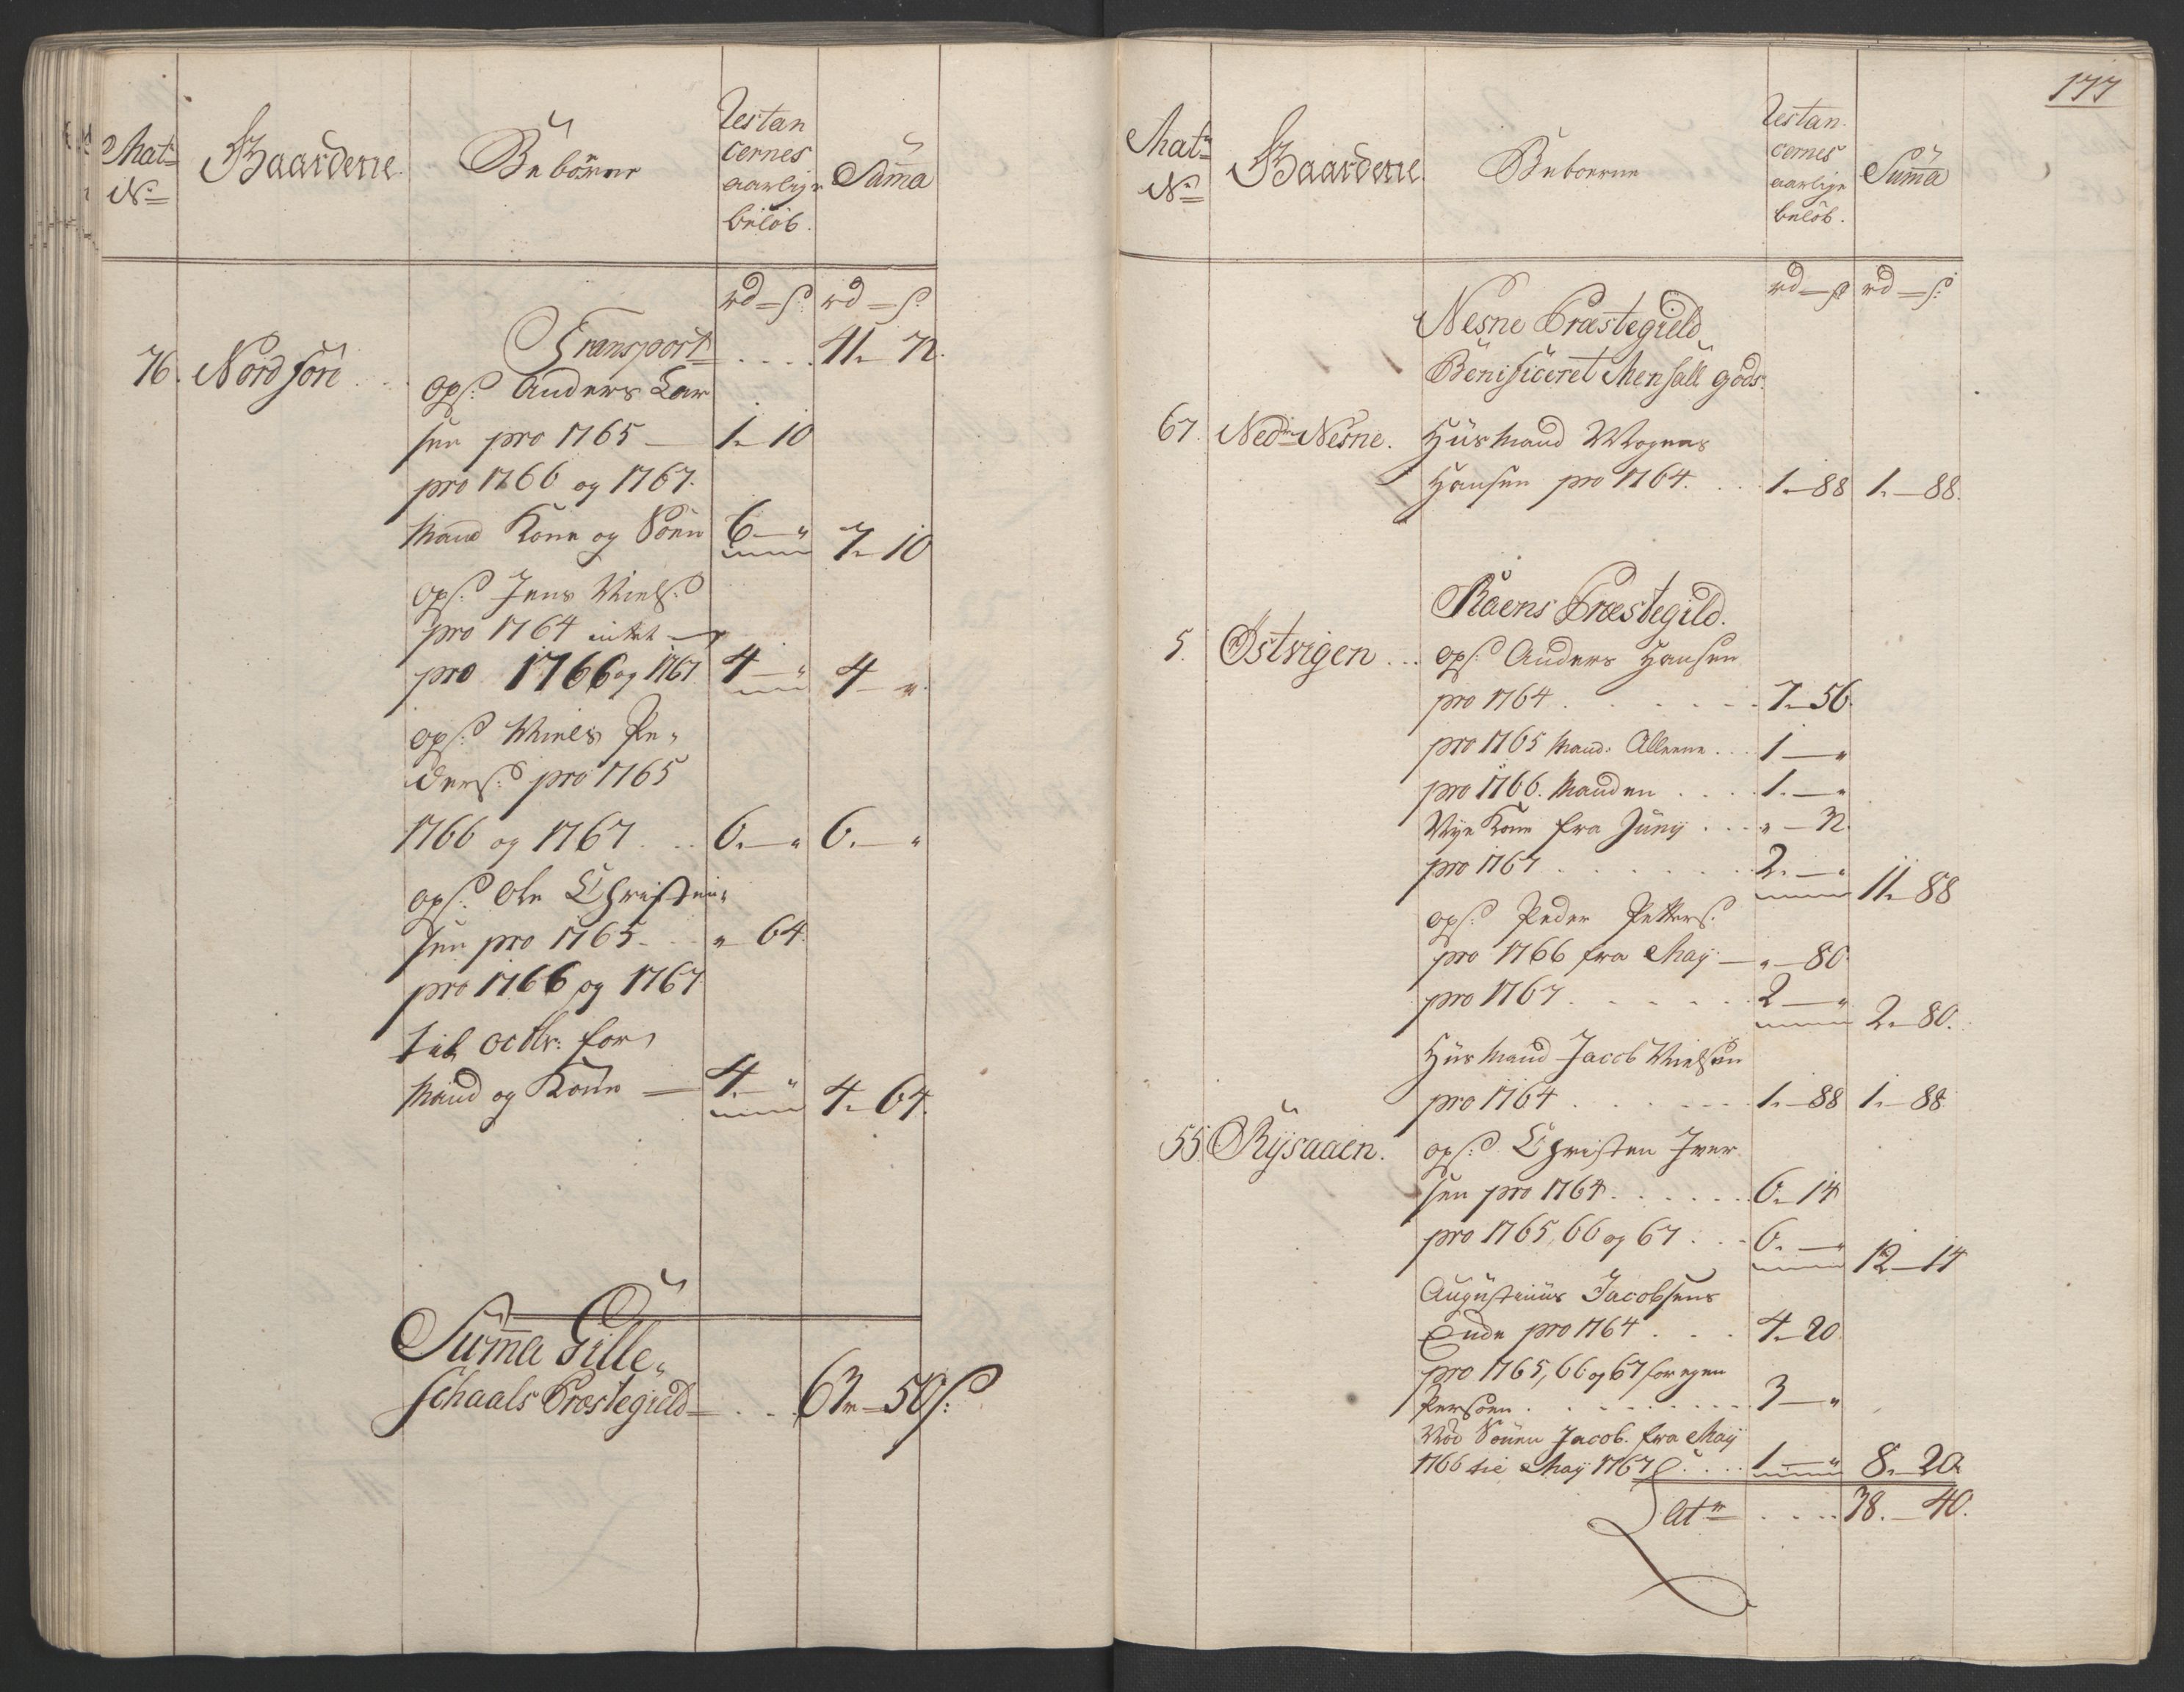 Mat:
No
Gaardene.
Beboerne
Restan
cernes
aarlige
beløb.
Summa
rd – s: rd – s:
Transport . . . . 41 – 72.
76. Nordfore . . ops: Anders Lar
sen pro 1765 – 1 – 10
pro 1766 og 1767.
Mand Kone og Søn 6 – " 7 – 10
ops: Jens Niels:
pro 1764 intet –
pro 1766 og 1767 4 – " 4 – "
ops: Niels Pe„
ders: pro 1765
1766 og 1767 . . 6. – " 6. – "
ops: Ole Christen„
sen pro 1765 – . . " 64.
pro 1766 og 1767
til octbr: for
Mand og Kone – 4. – " 4 – 64.
Summa Gille„
schaals Præstegield – . . 63 – 50 s:
177
Matr
No
Gaardene.
Beboerne
Restan
cernes
aarlige
beløb.
Summa
rd – s: rd – s:
Nesne Præstegield
Benificeret Mensall gods.
67. Nedre Nesne. Huusmand Mogens
Hansen pro 1764. . . 1. – 88 1. – 88.
Raens Præstegild.
5. Østrigen . . . ops: Anders Hansen
pro 1764 . . . . . . 7 – 56.
pro 1765 Mand: Alleene . . . 1 – "
pro 1766. Manden . . . . 1. – "
Nye Kone fra Junij . . . " – 32.
pro 1767 . . . . . . . 2. – " 11 – 88
ops: Peder Petters:
pro 1766 fra Maj – " – 80
pro 1767 . . . . . . 2 – " 2 – 80.
Huusmand Jacob Nielsen
pro 1764 . . . . . . 1. – 88 1. – 88
55. Rysaaen. ops: Christen Iver
sen pro 1764 . . . . . . 6 – 14
pro 1765, 66 og 67 : . . 6. – " 12 – 14
Augustinus Jacobsens
Enke pro 1764 . . . 4 – 20.
pro 1765, 66 og 67 for egen
Persohn . . . . . . . . . 3 – "
Nok Sønen Jacob. fra Maij
1766 til Maij 1767 . . . 1 – " 8. – 20.
Latr . . . . 38. – 40.